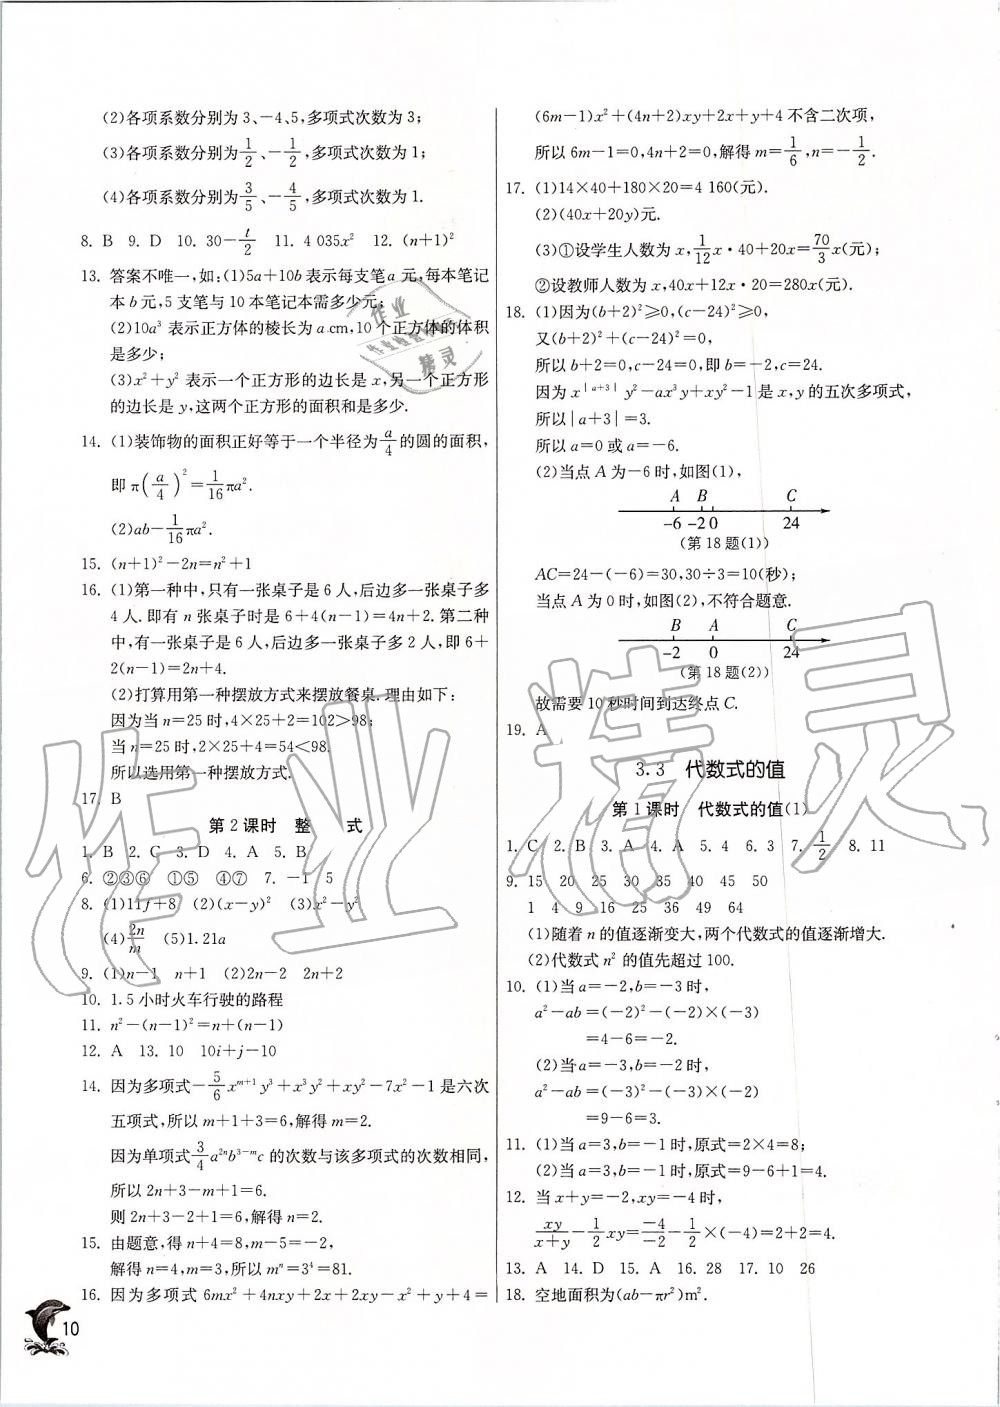 (2)各项系数分别为3、-4、5,多项式次数为3;
(3)各项系数分别为1/2、-1/2,多项式次数为1;
(4)各项系数分别为3/5、-4/5,多项式次数为1.
8. B 9. D 10. 30-t/2 11. 4 035x² 12. (n+1)²
13. 答案不唯一,如:(1)5a+10b表示每支笔a元,每本笔记
本b元,5支笔与10本笔记本需多少元;
(2)10a³表示正方体的棱长为a cm,10个正方体的体积
是多少;
(3)x²+y²表示一个正方形的边长是x,另一个正方形
的边长是y,这两个正方形的面积和是多少.
14. (1)装饰物的面积正好等于一个半径为a/4的圆的面积,
即π(a/4)²=1/16πa².
(2)ab-1/16πa².
15. (n+1)²-2n=n²+1
16. (1)第一种中,只有一张桌子是6人,后边多一张桌子多
4人.即有n张桌子时是6+4(n-1)=4n+2.第二种
中,有一张桌子是6人,后边多一张桌子多2人,即6+
2(n-1)=2n+4.
(2)打算用第一种摆放方式来摆放餐桌.理由如下:
因为当n=25时,4×25+2=102>98;
当n=25时,2×25+4=54<98.
所以选用第一种摆放方式.
17. B
第2课时 整 式
1. B 2. C 3. D 4. A 5. B
6. ②③⑥ ①⑤ ④⑦ 7. -1 5
8. (1)11f+8 (2)(x-y)² (3)x²-y²
(4)2n/m (5)1.21a
9. (1)n-1 n+1 (2)2n-2 2n+2
10. 1.5小时火车行驶的路程
11. n²-(n-1)²=n+(n-1)
12. A 13. 10 10i+j-10
14. 因为多项式-5/6x^{m+1}y³+x³y²+xy²-7x²-1是六次
五项式,所以m+1+3=6,解得m=2.
因为单项式3/4a^{2n}b^{3-m}c的次数与该多项式的次数相同,
所以2n+3-m+1=6.
则2n+3-2+1=6,解得n=2.
15. 由题意,得n+4=8,m-5=-2,
解得n=4,m=3,所以mⁿ=3⁴=81.
16. 因为多项式6mx²+4nxy+2x+2xy-x²+y+4=
10
(6m-1)x²+(4n+2)xy+2x+y+4不含二次项,
所以6m-1=0,4n+2=0,解得m=1/6,n=-1/2.
17. (1)14×40+180×20=4 160(元).
(2)(40x+20y)元.
(3)①设学生人数为x,1/12x·40+20x=70/3x(元);
②设教师人数为x,40x+12x·20=280x(元).
18. (1)因为(b+2)²≥0,(c-24)²≥0,
又(b+2)²+(c-24)²=0,
所以b+2=0,c-24=0,即b=-2,c=24.
因为x^{|a+3|}y²-ax³y+xy²-1是x,y的五次多项式,
所以|a+3|=3.
所以a=0或a=-6.
(2)当点A为-6时,如图(1),
A B C
-6 -2 0 24
(第18题(1))
AC=24-(-6)=30,30÷3=10(秒);
当点A为0时,如图(2),不符合题意.
B A C
-2 0 24
(第18题(2))
故需要10秒时间到达终点C.
19. A
3.3 代数式的值
第1课时 代数式的值(1)
1. C 2. B 3. A 4. A 5. 4 6. 3 7. 1/2 8. 11
9. 15 20 25 30 35 40 45 50
1 4 9 16 25 36 49 64
(1)随着n的值逐渐变大,两个代数式的值逐渐增大.
(2)代数式n²的值先超过100.
10. (1)当a=-2,b=-3时,
a²-ab=(-2)²-(-2)×(-3)
=4-6=-2.
(2)当a=-3,b=-2时,
a²-ab=(-3)²-(-3)×(-2)
=9-6=3.
11. (1)当a=3,b=-1时,原式=2×4=8;
(2)当a=3,b=-1时,原式=9-6+1=4.
12. 当x+y=-2,xy=-4时,
xy/(x+y)-1/2xy=-4/-2-1/2×(-4)=2+2=4.
13. A 14. D 15. A 16. 28 17. 10 26
18. 空地面积为(ab-πr²)m².
作业精灵